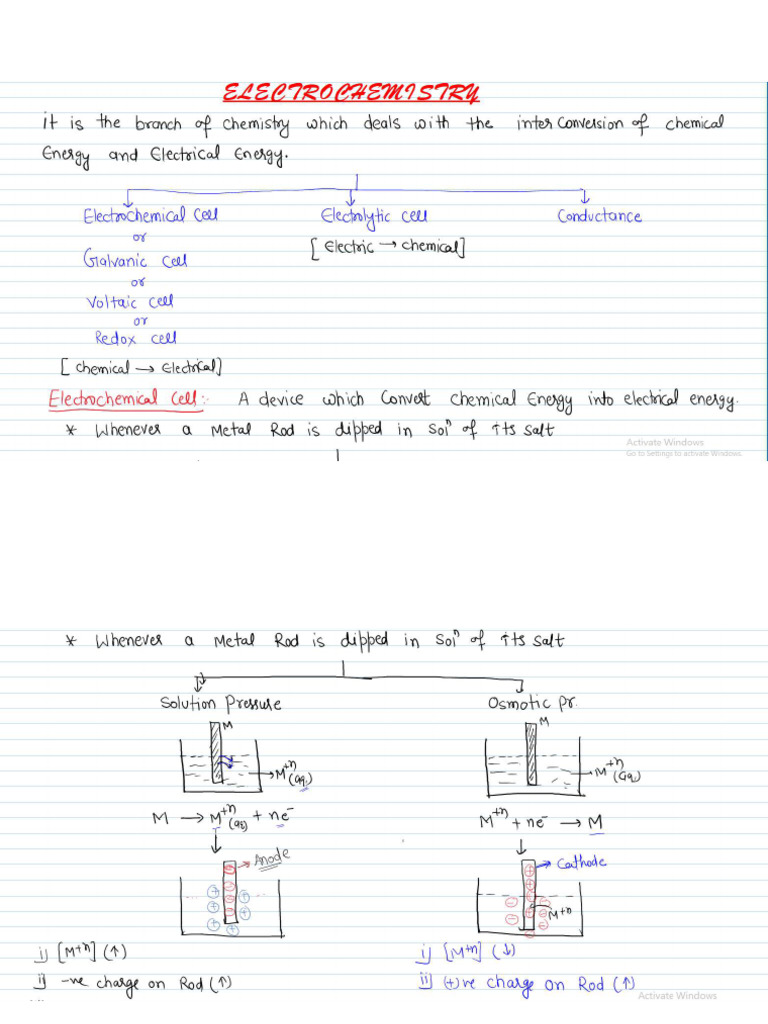 ELECTROCHEMISTRY
it is the branch of chemistry which deals with the inter conversion of chemical
Energy and Electrical Energy.
Electrochemical Cell Electrolytic cell Conductance
or [Electric → chemical]
Galvanic cell
or
Voltaic cell
or
Redox cell
[chemical → Electrical]
Electrochemical Cell:- A device which Convert chemical Energy into electrical energy.
* Whenever a Metal Rod is dipped in Solⁿ of its salt
Activate Windows
Go to Settings to activate Windows.
* Whenever a Metal Rod is dipped in Solⁿ of its salt
Solution Pressure Osmotic Pr.
M M
M⁺ⁿ(aq.) M⁺ⁿ(aq.)
M → M⁺ⁿ(aq) + ne⁻ M⁺ⁿ + ne⁻ → M
Anode Cathode
M⁺ⁿ
i) [M⁺ⁿ] (↑) i) [M⁺ⁿ] (↓)
ii) -ve charge on Rod (↑) ii) (+)ve charge on Rod (↑)
Activate Windows